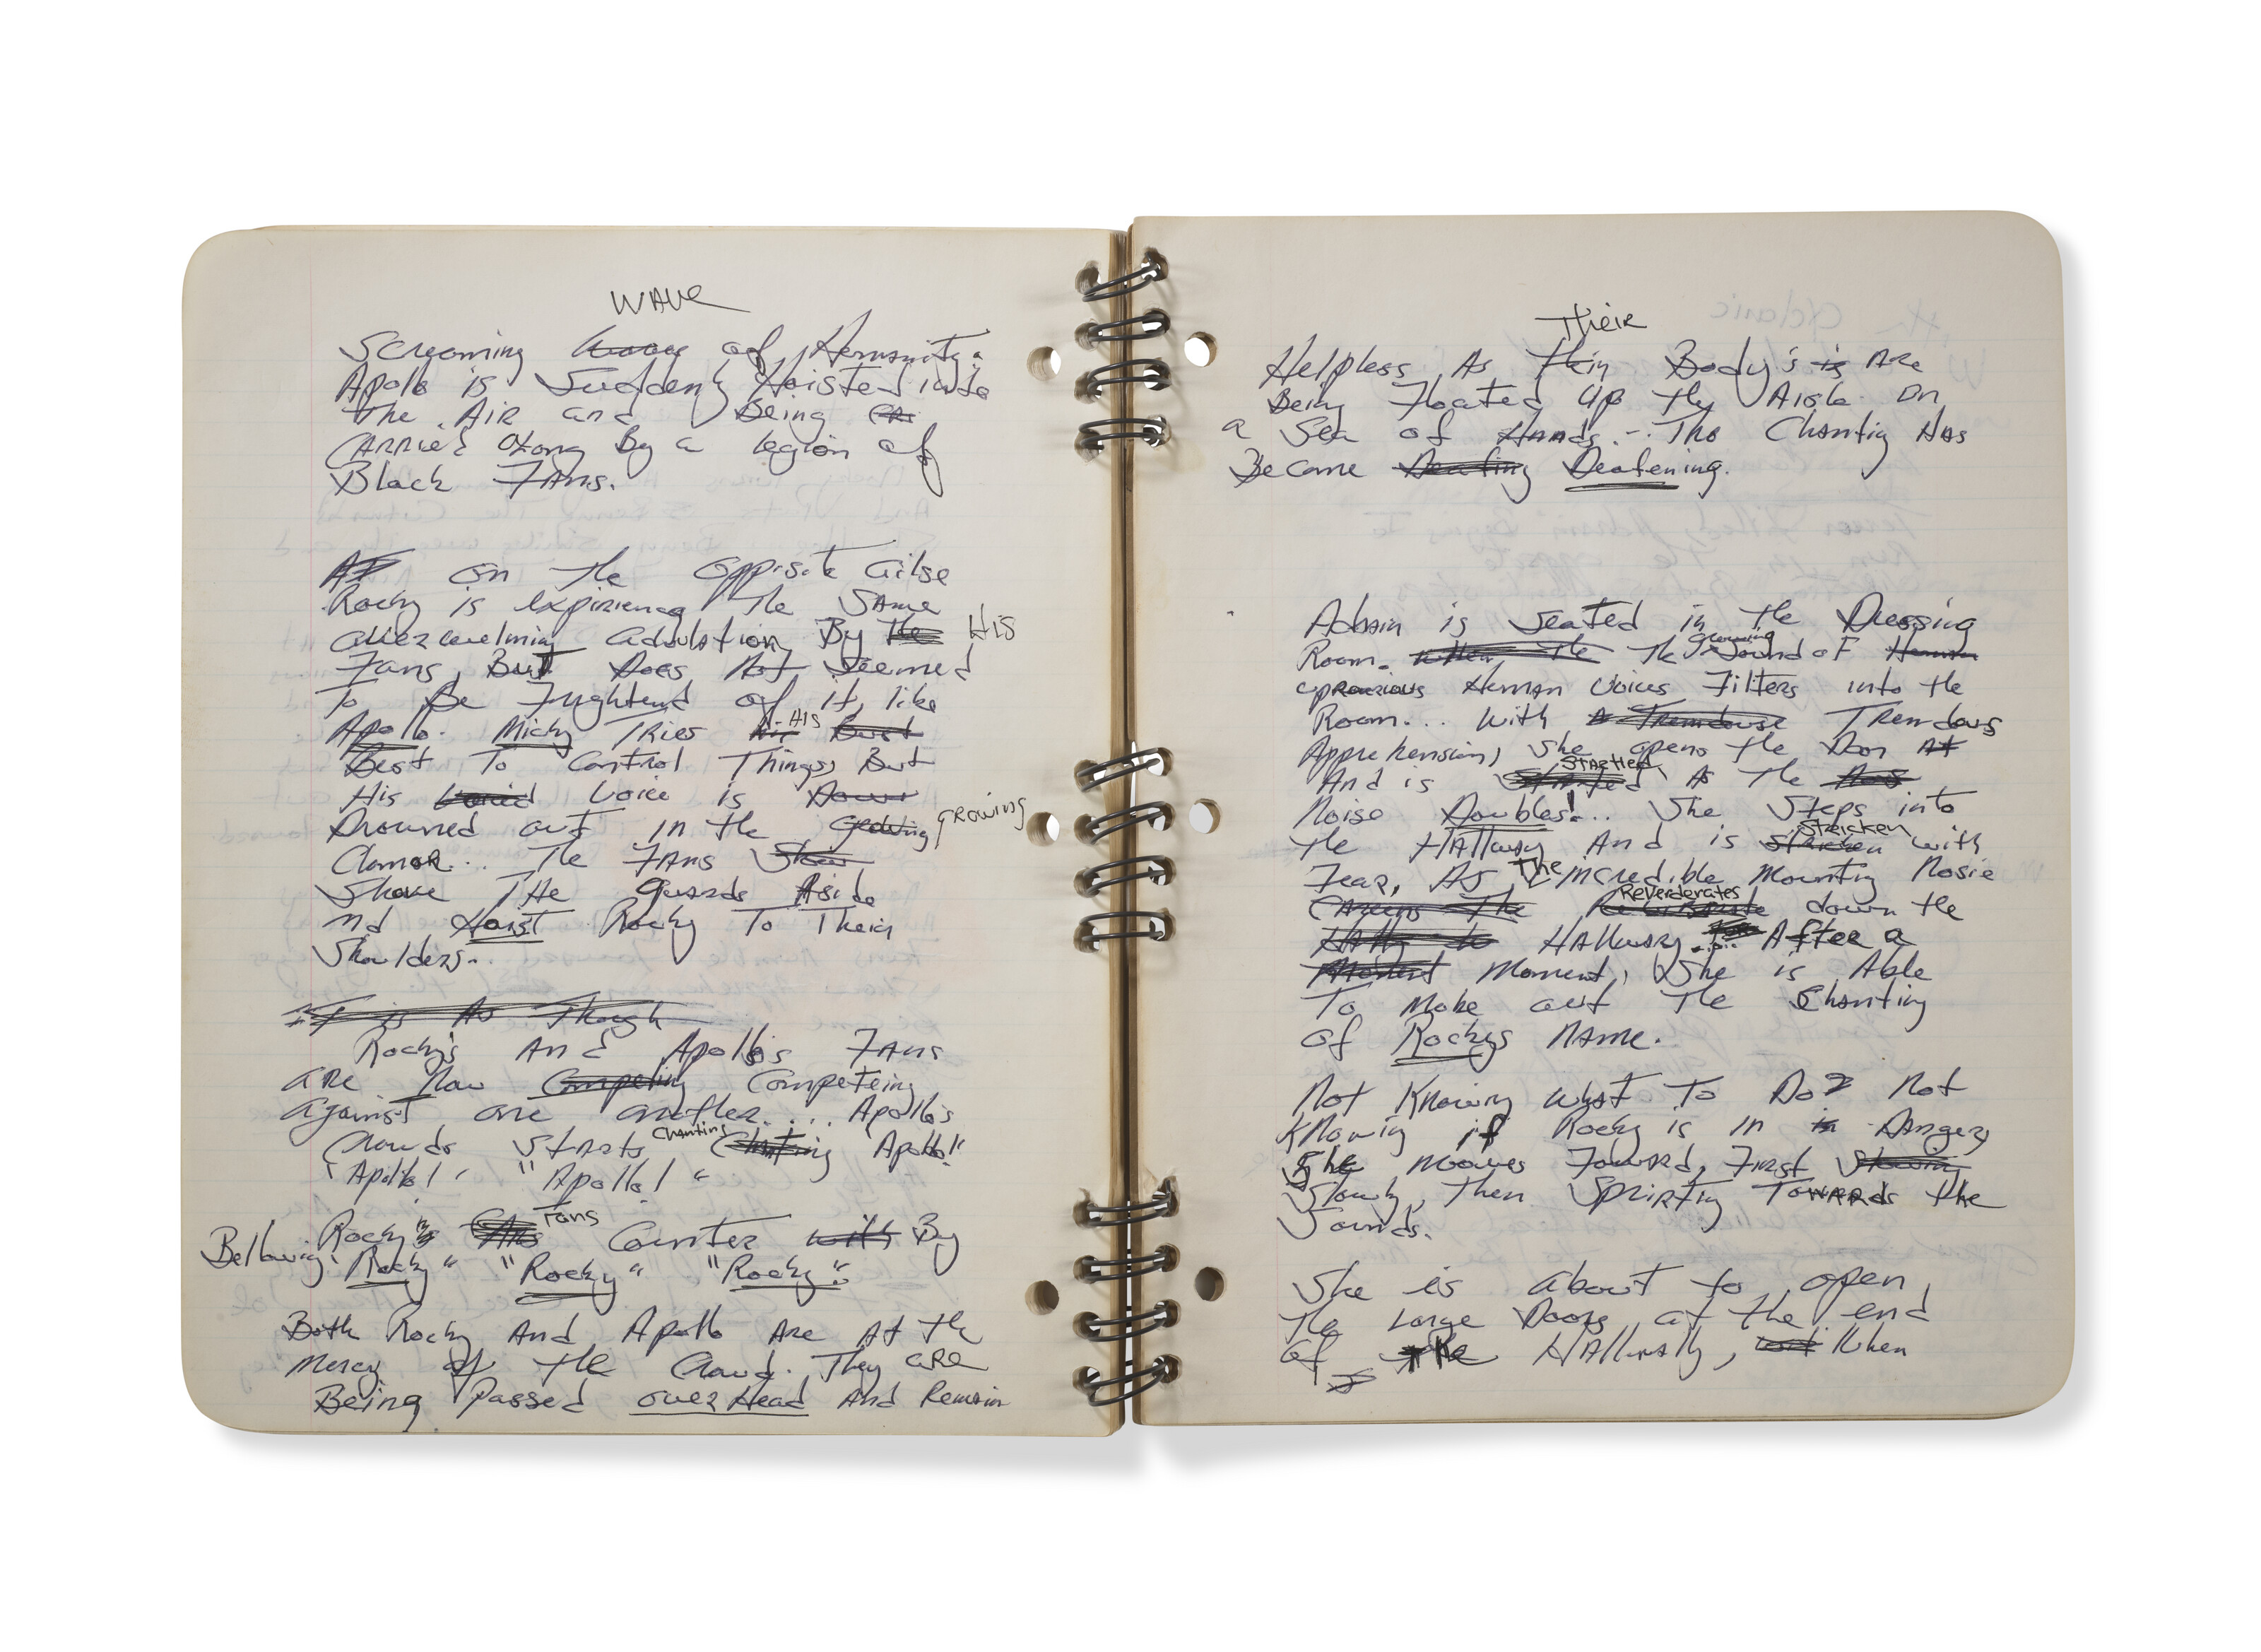 WAVE
Screaming of Humanity.
Apollo is Suddenly Hoisted into
The AIR and Being
CARRIED Along By a legion of
Black FANS.
On the Opposite Ailse
Rocky is expiriencg The SAMe
overwelming adulation By HIS
Fans, But Does Not Seemed
To Be Frightend of it, like
Apollo. Micky TRies HIS
Best To Control Things, But
His Voice is
Drowned out in the growing
Clamor... The FANS
Shove THe guards Aside
nd Hoist Rocky To Their
Shoulders..
IT is As Though
Rocky's And Apollo's FANS
are Now Competing Competeing
against one another.... Apollo's
Crowds Starts Chanting "Apollo!"
"Apollo!" "Apollo!"
Rocky's Fans Counter with By
Bellowing "Rocky" "Rocky" "Rocky".
Both Rocky And Apollo ARe At the
Mercy of the Crowd. They are
Being Passed over Head And Remain
Their
Helpless As Body's is ARe
Being Floated Up the Aisle On
a Sea of Hands... The Chantig HAs
Become Deafening.
Adrain is Seated in the Dressing
Room. when The The growing Sound of
uproarious Human Voices Filters into the
Room... With A Tremdouse Tremdous
Apprehension, She opens the Door At
And is Startled As The
Noise Doubles!... She Steps into
the HAllway And is Stricken with
Fear, As The incredible Mountig Nosie
Careens The Reverderates down the
HAllway... After a
Moment Moment, She is Able
To Make out The Chanting
of Rockys NAMe.
Not Knowing what To Do? Not
Knowig if Rocky is in in Danger,
She Moves Foward, First
Slowly, Then Sprirtig Towards the
Sounds.
She is about to open
The Large Doors at the end
of the HAllwally, When